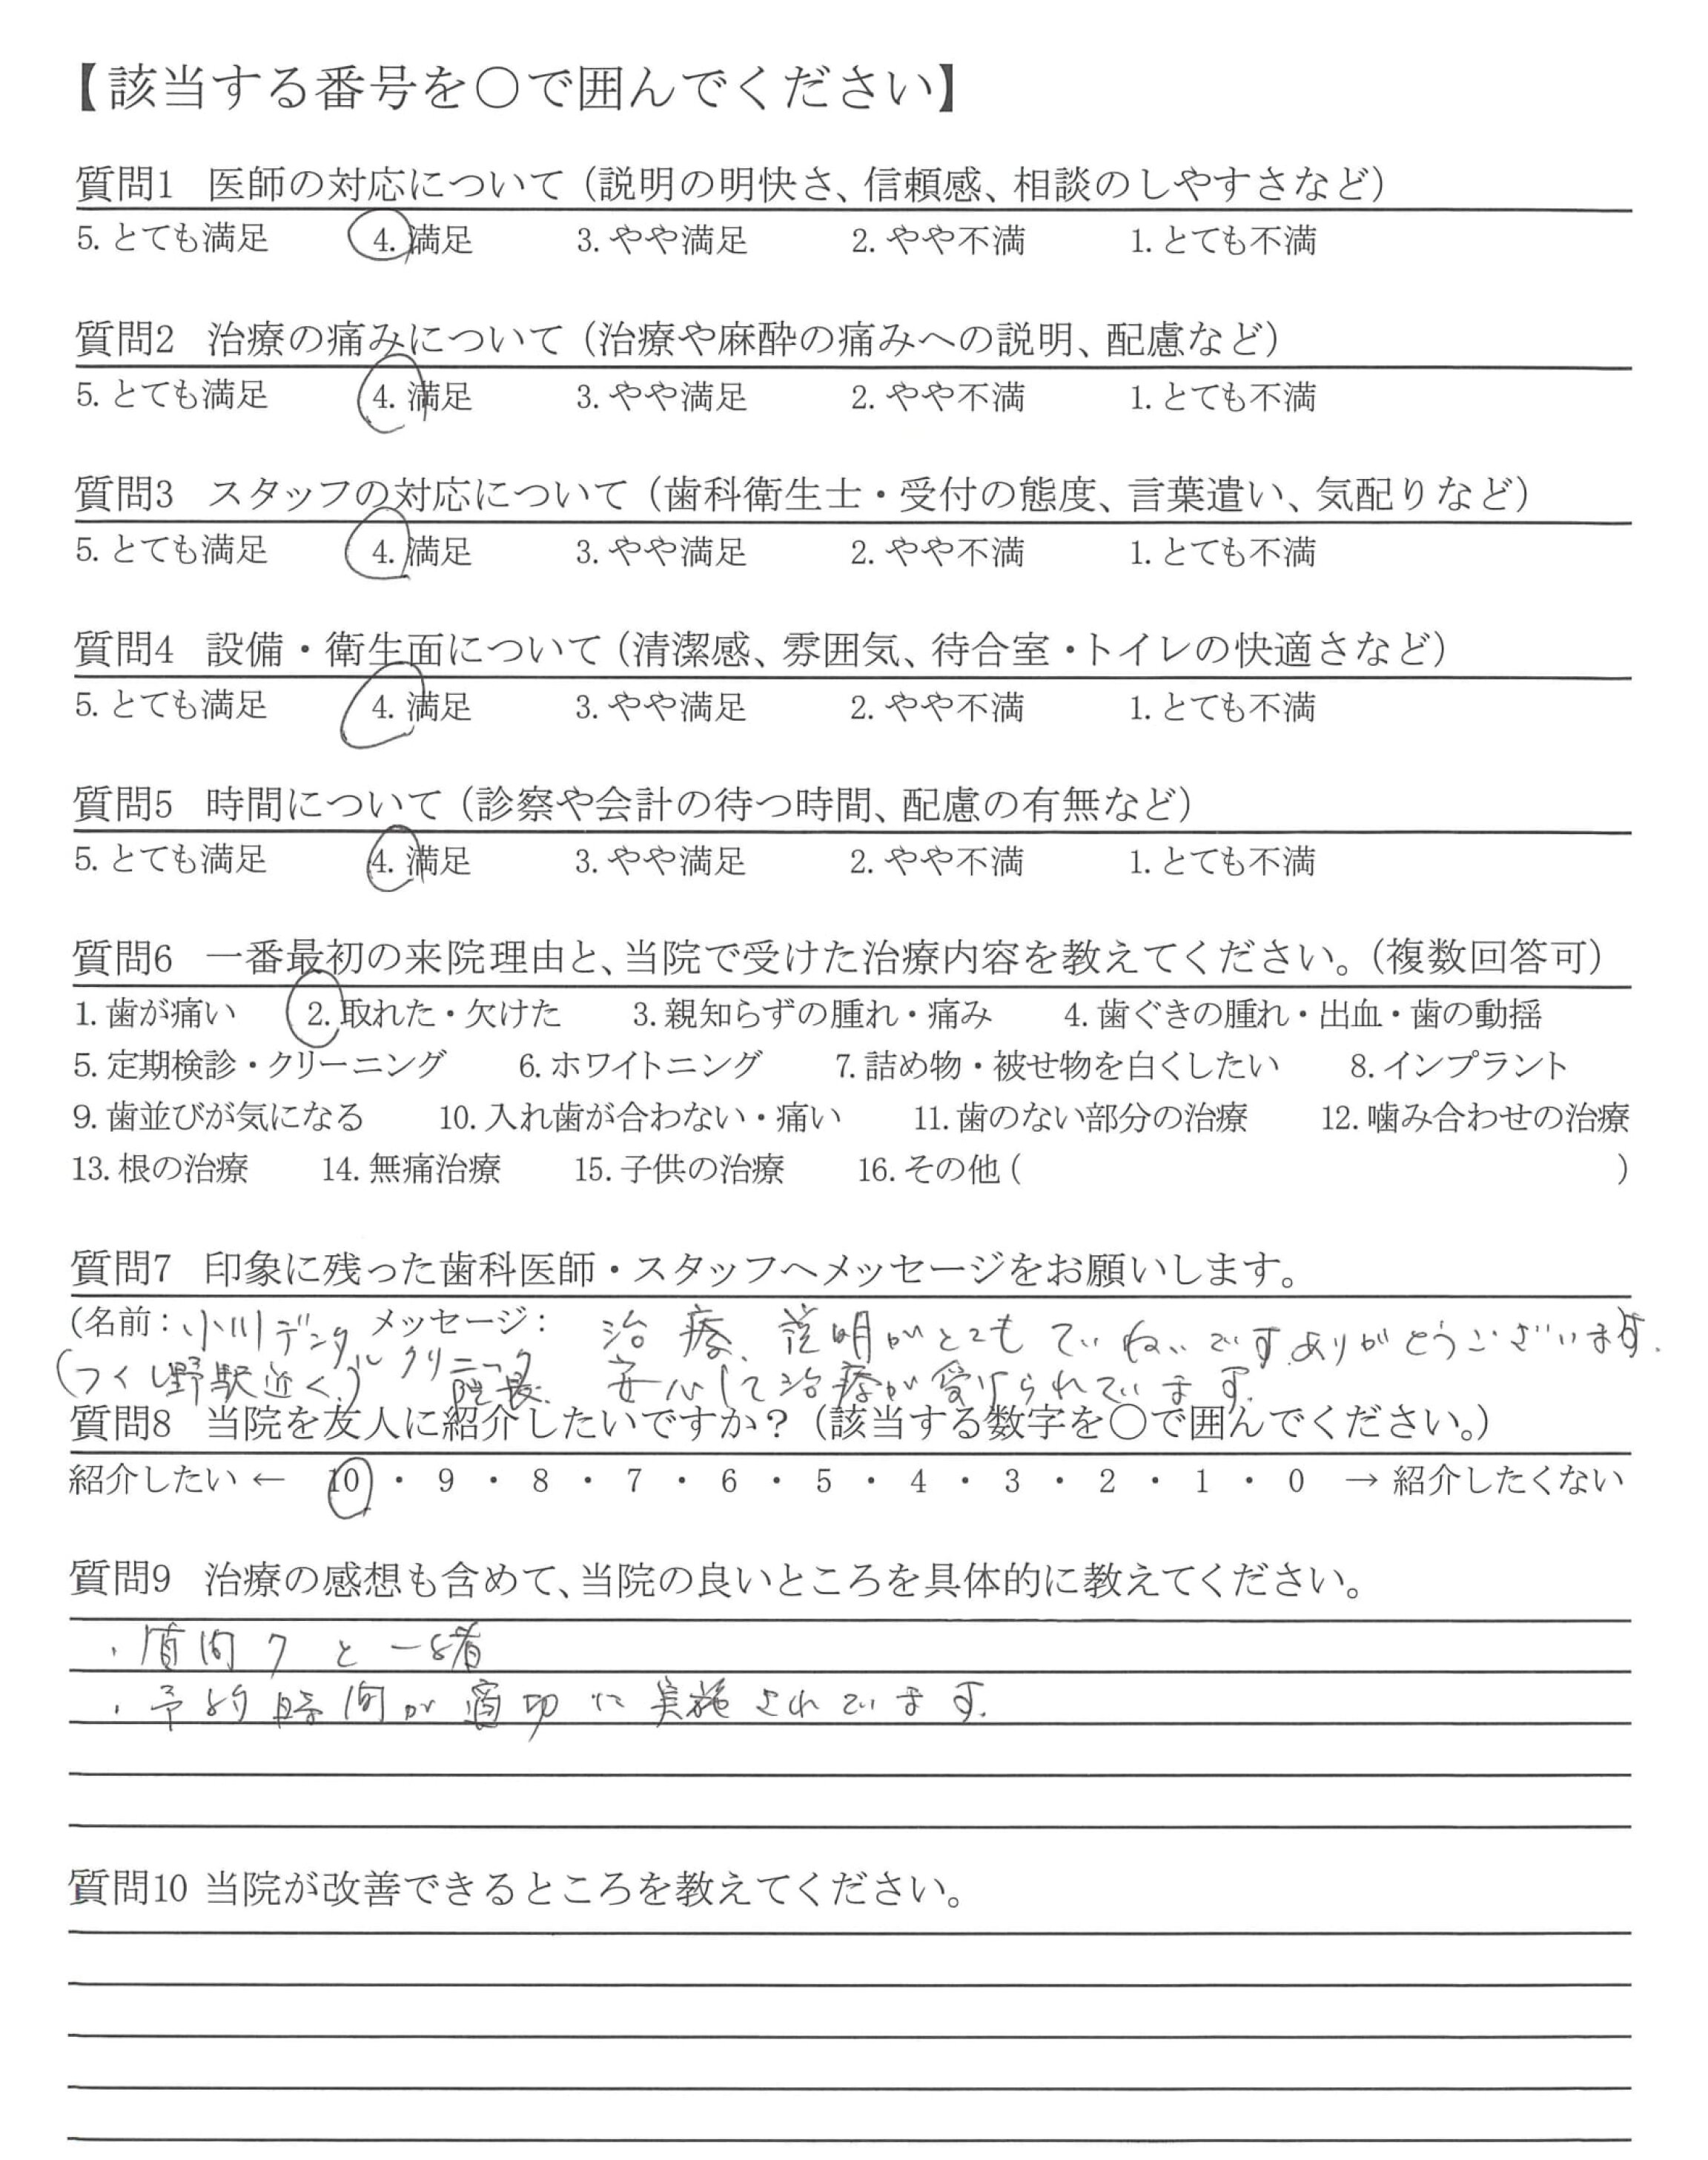 【該当する番号を○で囲んでください】
質問1 医師の対応について（説明の明快さ、信頼感、相談のしやすさなど）
5. とても満足 4. 満足 3. やや満足 2. やや不満 1. とても不満
質問2 治療の痛みについて（治療や麻酔の痛みへの説明、配慮など）
5. とても満足 4. 満足 3. やや満足 2. やや不満 1. とても不満
質問3 スタッフの対応について（歯科衛生士・受付の態度、言葉遣い、気配りなど）
5. とても満足 4. 満足 3. やや満足 2. やや不満 1. とても不満
質問4 設備・衛生面について（清潔感、雰囲気、待合室・トイレの快適さなど）
5. とても満足 4. 満足 3. やや満足 2. やや不満 1. とても不満
質問5 時間について（診察や会計の待つ時間、配慮の有無など）
5. とても満足 4. 満足 3. やや満足 2. やや不満 1. とても不満
質問6 一番最初の来院理由と、当院で受けた治療内容を教えてください。（複数回答可）
1. 歯が痛い 2. 取れた・欠けた 3. 親知らずの腫れ・痛み 4. 歯ぐきの腫れ・出血・歯の動揺
5. 定期検診・クリーニング 6. ホワイトニング 7. 詰め物・被せ物を白くしたい 8. インプラント
9. 歯並びが気になる 10. 入れ歯が合わない・痛い 11. 歯のない部分の治療 12. 噛み合わせの治療
13. 根の治療 14. 無痛治療 15. 子供の治療 16. その他 ( )
質問7 印象に残った歯科医師・スタッフへメッセージをお願いします。
(名前：小川デンタルクリニック メッセージ： 治療、説明がとてもていねいです。ありがとうございます。)
(つくし野駅近く) 院長 安心して治療が受けられています。
質問8 当院を友人に紹介したいですか？（該当する数字を○で囲んでください。）
紹介したい ← 10 ・ 9 ・ 8 ・ 7 ・ 6 ・ 5 ・ 4 ・ 3 ・ 2 ・ 1 ・ 0 → 紹介したくない
質問9 治療の感想も含めて、当院の良いところを具体的に教えてください。
・質問7と一緒
・予約時間が適切に実施されています。
質問10 当院が改善できるところを教えてください。